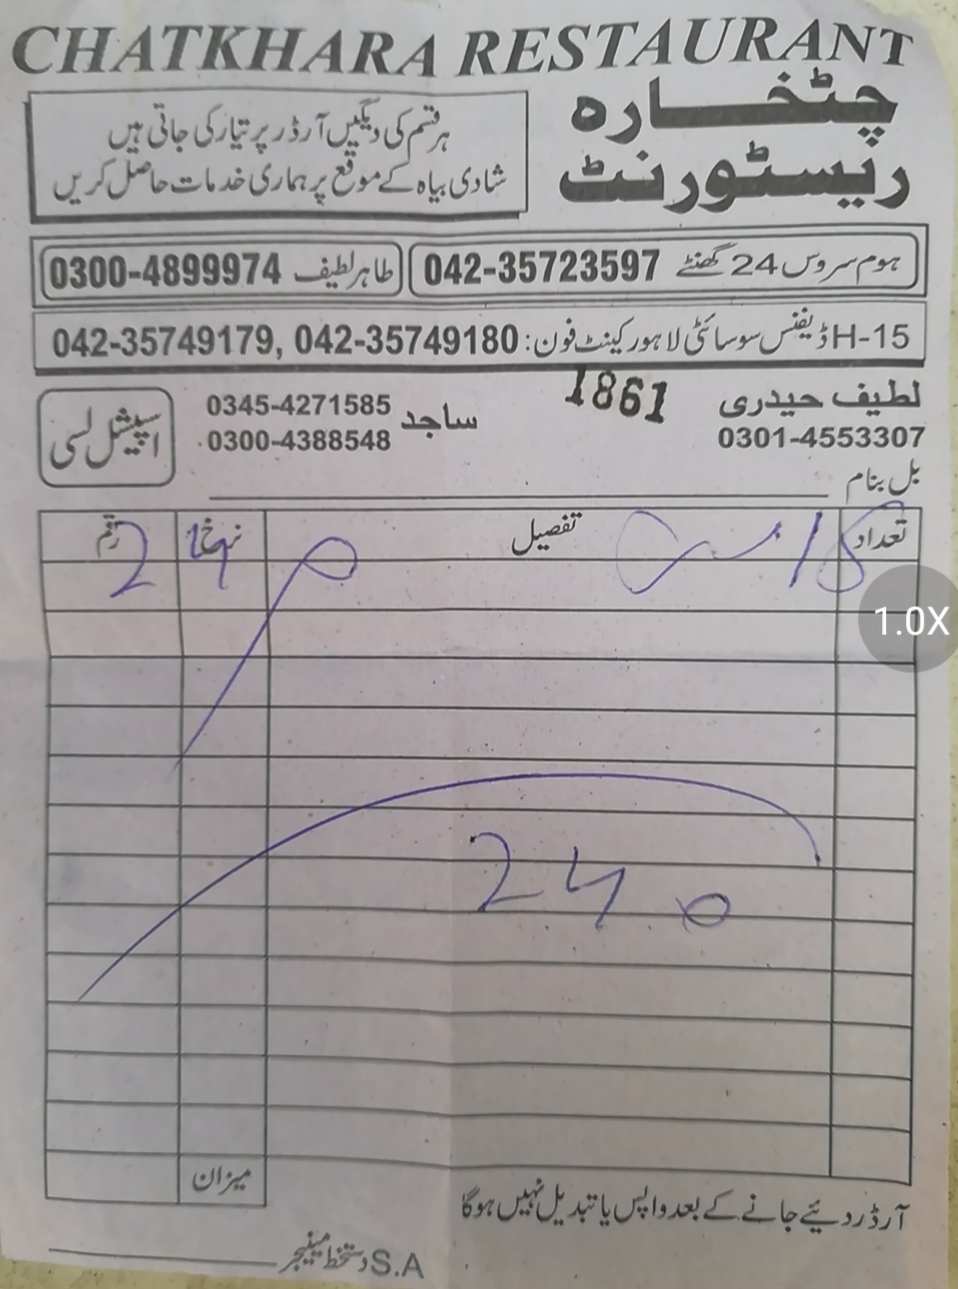 CHATKHARA RESTAURANT
چٹخارہ
ریسٹورنٹ
ہر قسم کی دیگیں آرڈر پر تیار کی جاتی ہیں
شادی بیاہ کے موقع پر ہماری خدمات حاصل کریں
ہوم سروس 24 گھنٹے 042-35723597
طاہر لطیف 0300-4899974
H-15 ڈیفنس سوسائٹی لاہور کینٹ فون: 042-35749179, 042-35749180
لطیف حیدری
0301-4553307
1861
ساجد 0345-4271585
0300-4388548
اسپیشل لسی
بل بنام
تعداد تفصیل نرخ رقم
240
240
میزان
آرڈر دئیے جانے کے بعد واپس یا تبدیل نہیں ہوگا
S.A دستخط مینیجر
1.0X